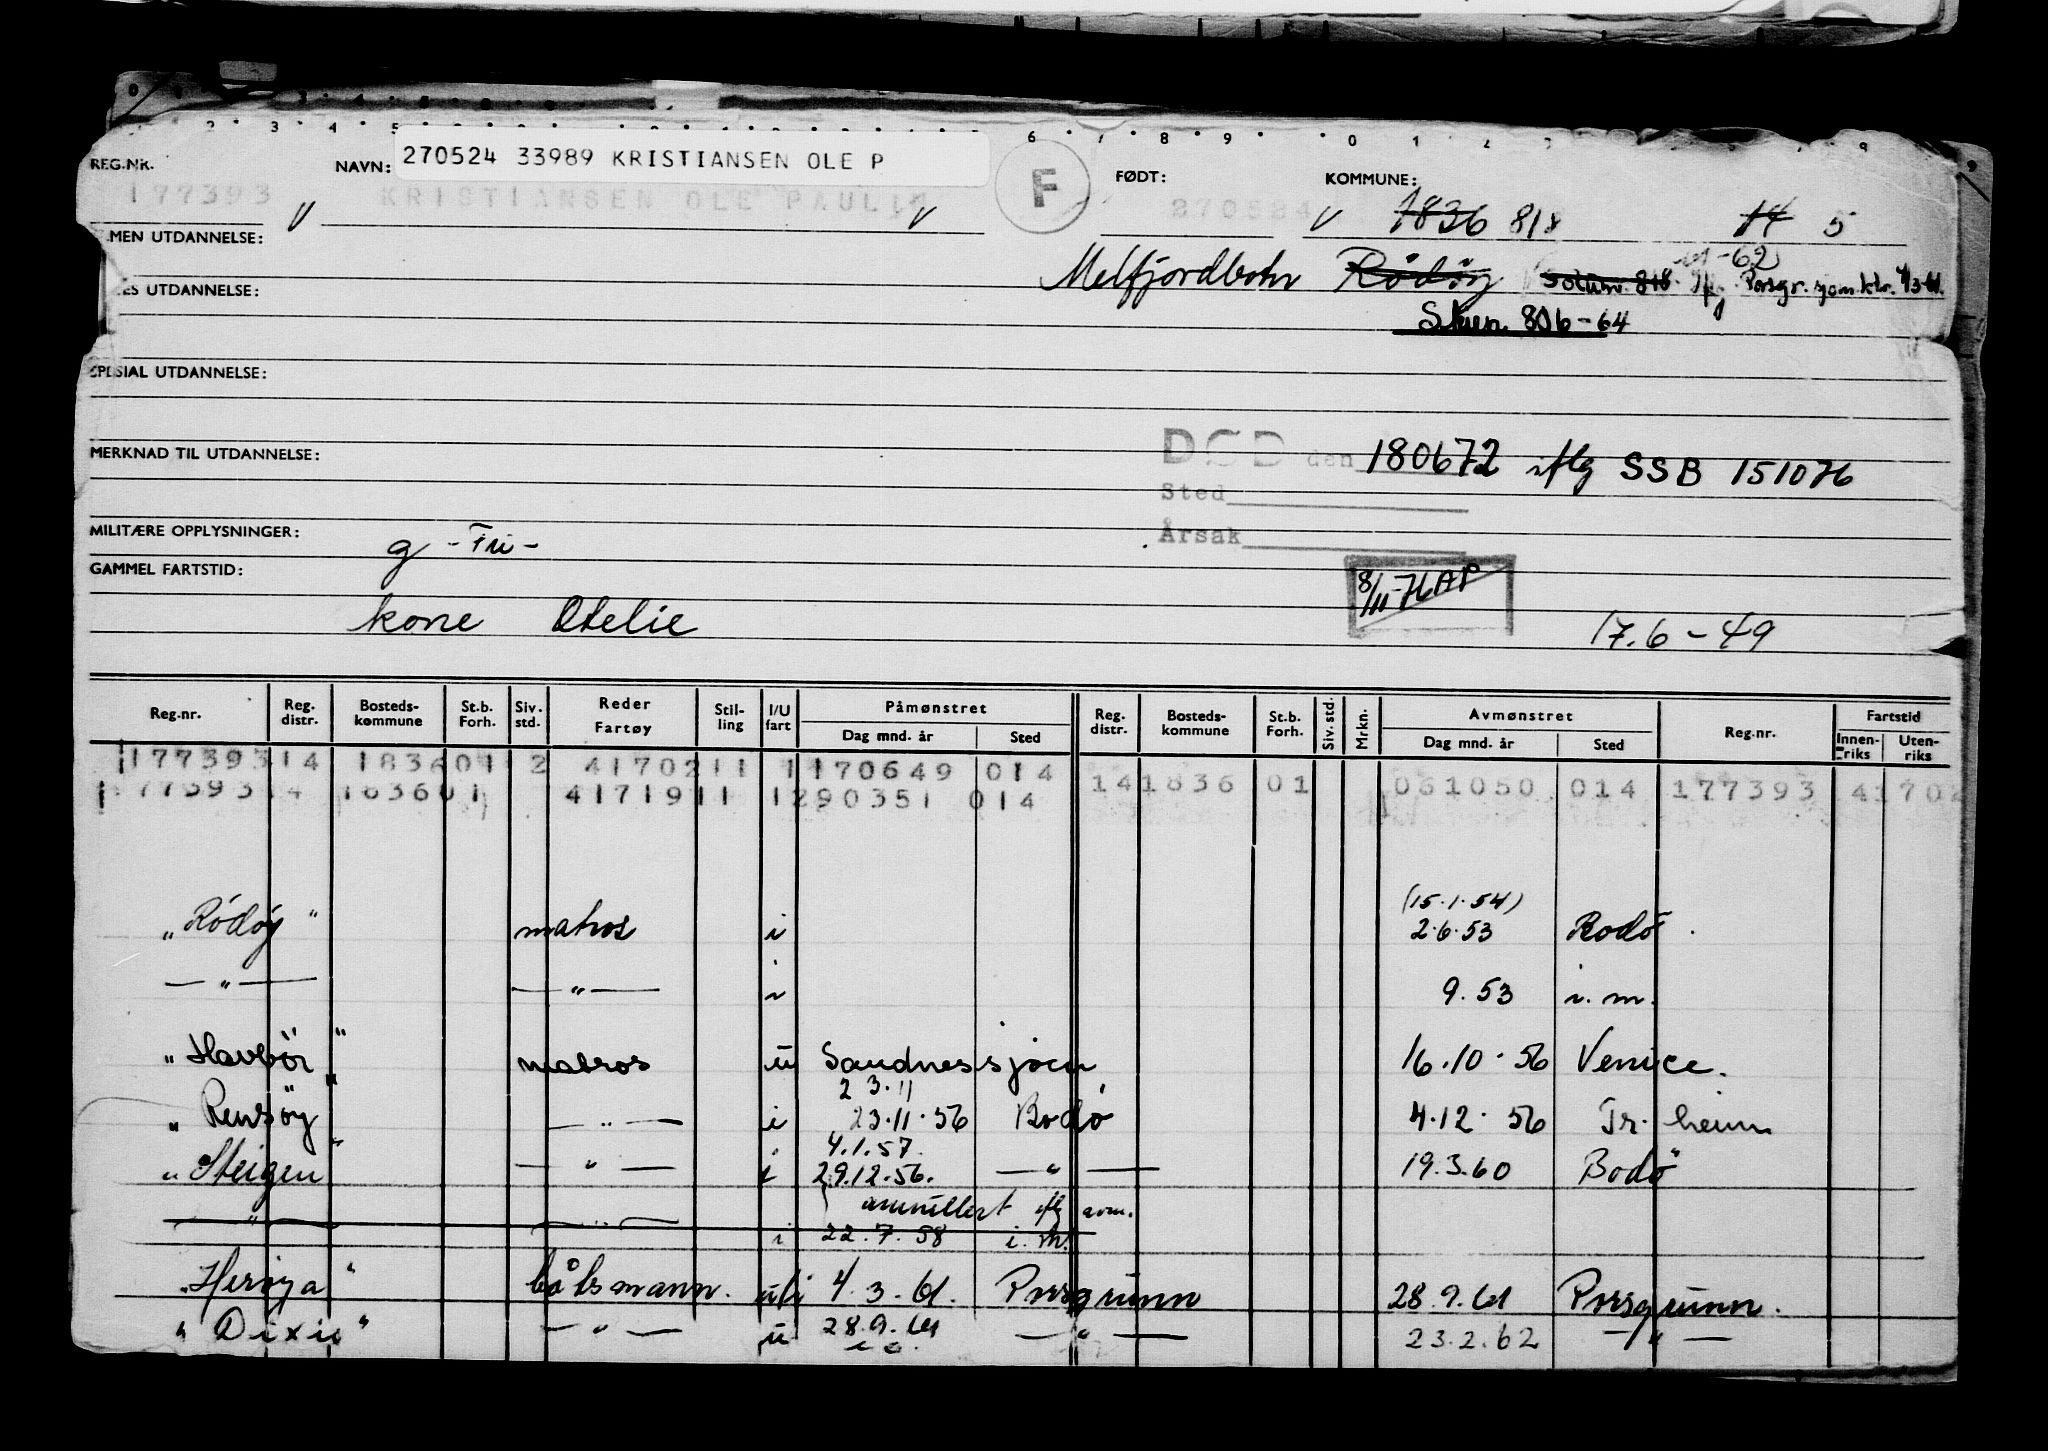 REG.NR. NAVN: 270524 33989 KRISTIANSEN OLE P F FØDT: KOMMUNE:
177393 KRISTIANSEN OLE PAULIN 270524
V V V 1836 818 14 5
MEN UTDANNELSE:
Melfjordbotn Rödöy Solum 818 -62 Porsgr. 4/3-61.
ES UTDANNELSE:
Skien 806-64
SPESIAL UTDANNELSE:
MERKNAD TIL UTDANNELSE:
DØD den 180672 iflg SSB 151076
Sted
MILITÆRE OPPLYSNINGER: g - Fri -
Årsak
GAMMEL FARTSTID:
8/11-76 AP
kone Otelie 17.6-49
Reg.nr. Reg. distr. Bosteds- kommune St.b. Forh. Siv. std. Reder Fartøy Stil- ling I/U fart Påmønstret Dag mnd. år Sted Reg. distr. Bosteds- kommune St.b. Forh. Siv. std. Mrkn. Avmønstret Dag mnd. år Sted Reg.nr. Fartstid Innen- riks Uten- riks
177393 14 1836 01 2 4170211 1 170649 014 14 1836 01 061050 014 177393 41702
177393 14 1836 01 4171911 1 290351 014
(15.1.54)
"Rödöy" matros i 2.6.53 Bodö
— " — — " — i 9.53 i.m.
"Havbör" matros u Sandnessjöen 16.10.56 Venice.
23.11
"Rensöy" — " — i 23.11.56 Bodö 4.12.56 Tr.heim
4.1.57.
"Steigen" — " — i 29.12.56. — " — 19.3.60 Bodö
annullert iflg avm.
— " — — " — i 22.7.58 i.m.
"Heröya" båtsmann. u/i 4.3.61. Porsgrunn 28.9.61 Porsgrunn.
"Dixie" — " — u 28.9.61 — " — 23.2.62 — " —